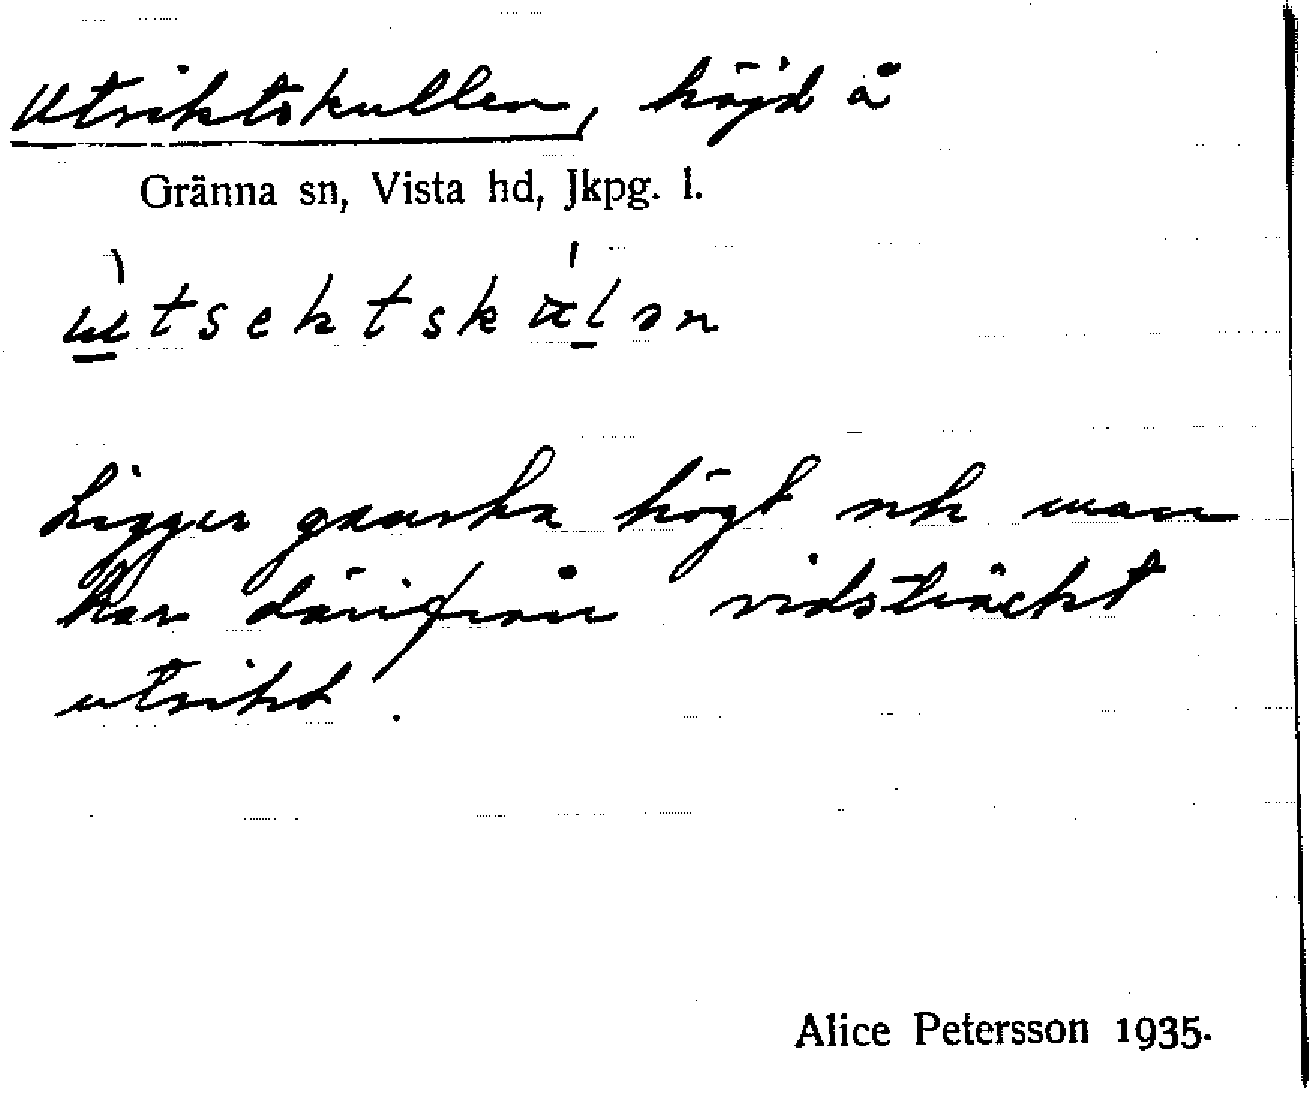 Utsiktskullen, höjd å
Gränna sn, Vista hd, Jkpg. l.
Ligger ganska högt och man
har därifrån vidsträckt
utsikt.
Alice Petersson 1935.